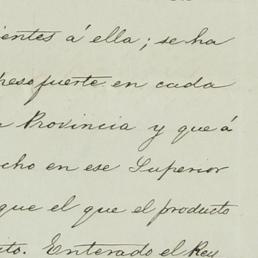 ientes á ella; se ha
peso fuerte en cada
Provincia y que á
cho en ese Superior
que el que el producto
to. Enterado el Rey